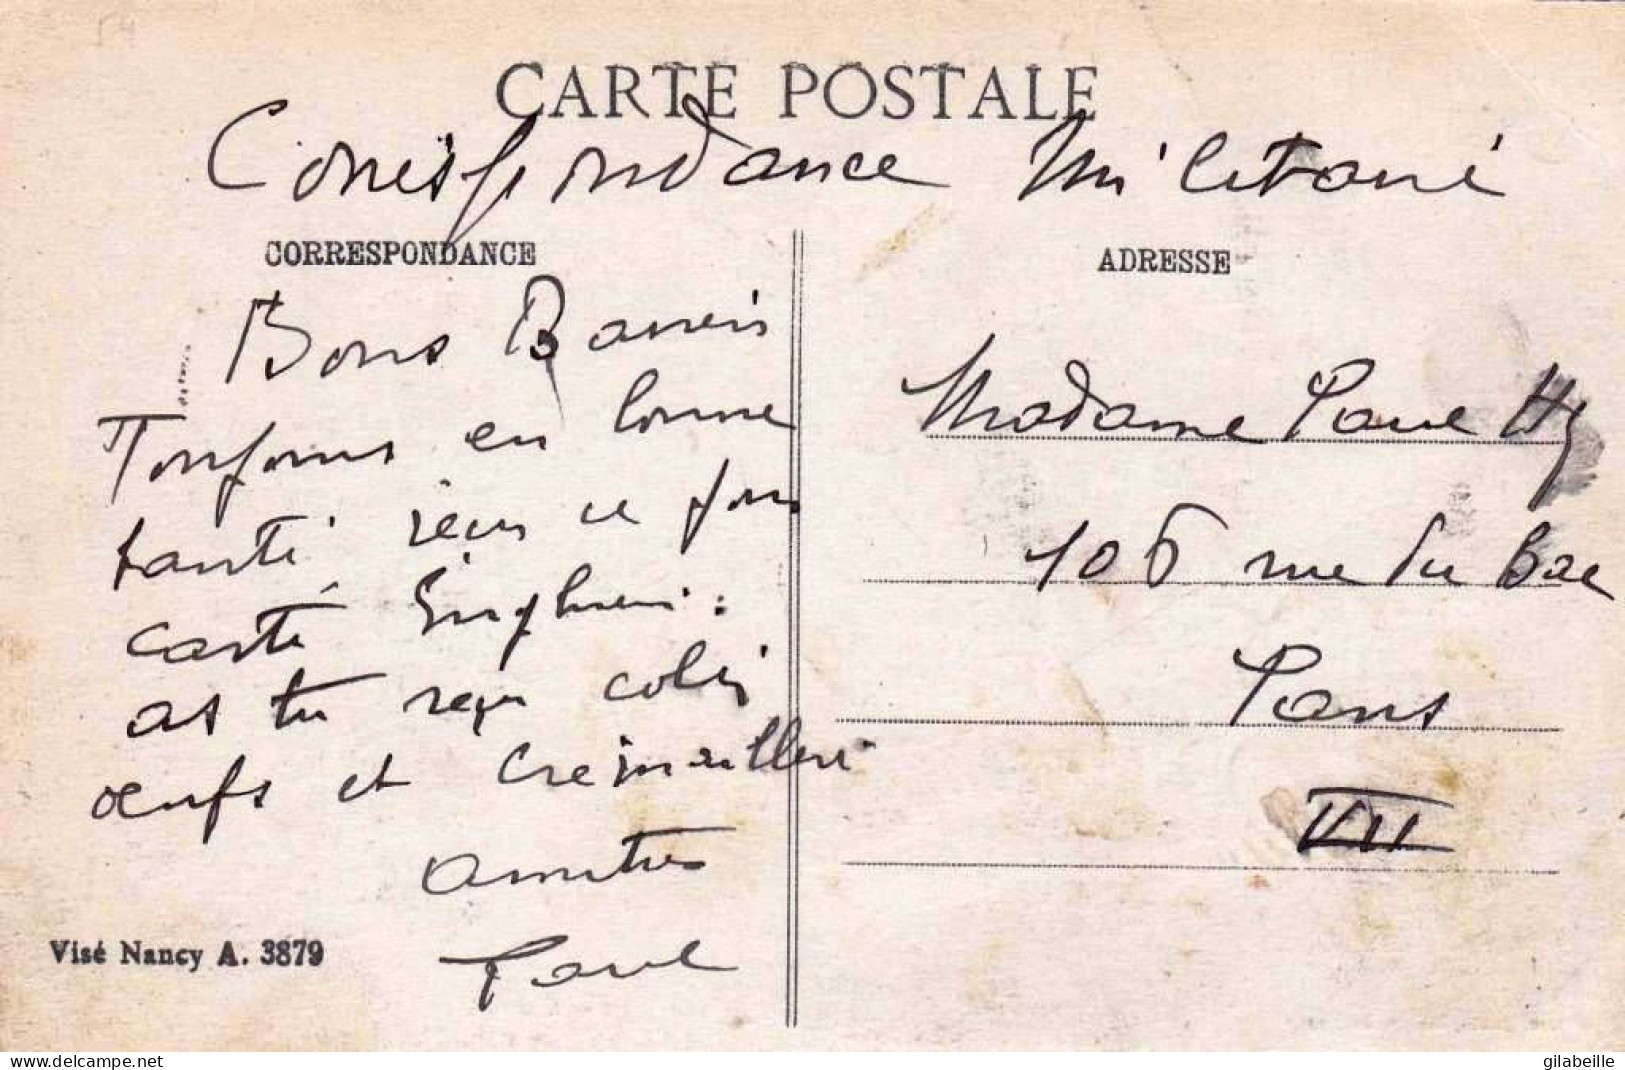 CARTE POSTALE
Correspondance Militaire
CORRESPONDANCE
ADRESSE
Bons Baisers
Toujours en bonne
santé reçu ce jour
carte Enghien :
as tu reçu colis
œufs et crémaillère
amitiés
Paul
Visé Nancy A. 3879
Madame Paul
106 rue du Bac
Paris
VII
delcampe.net
gilabeille